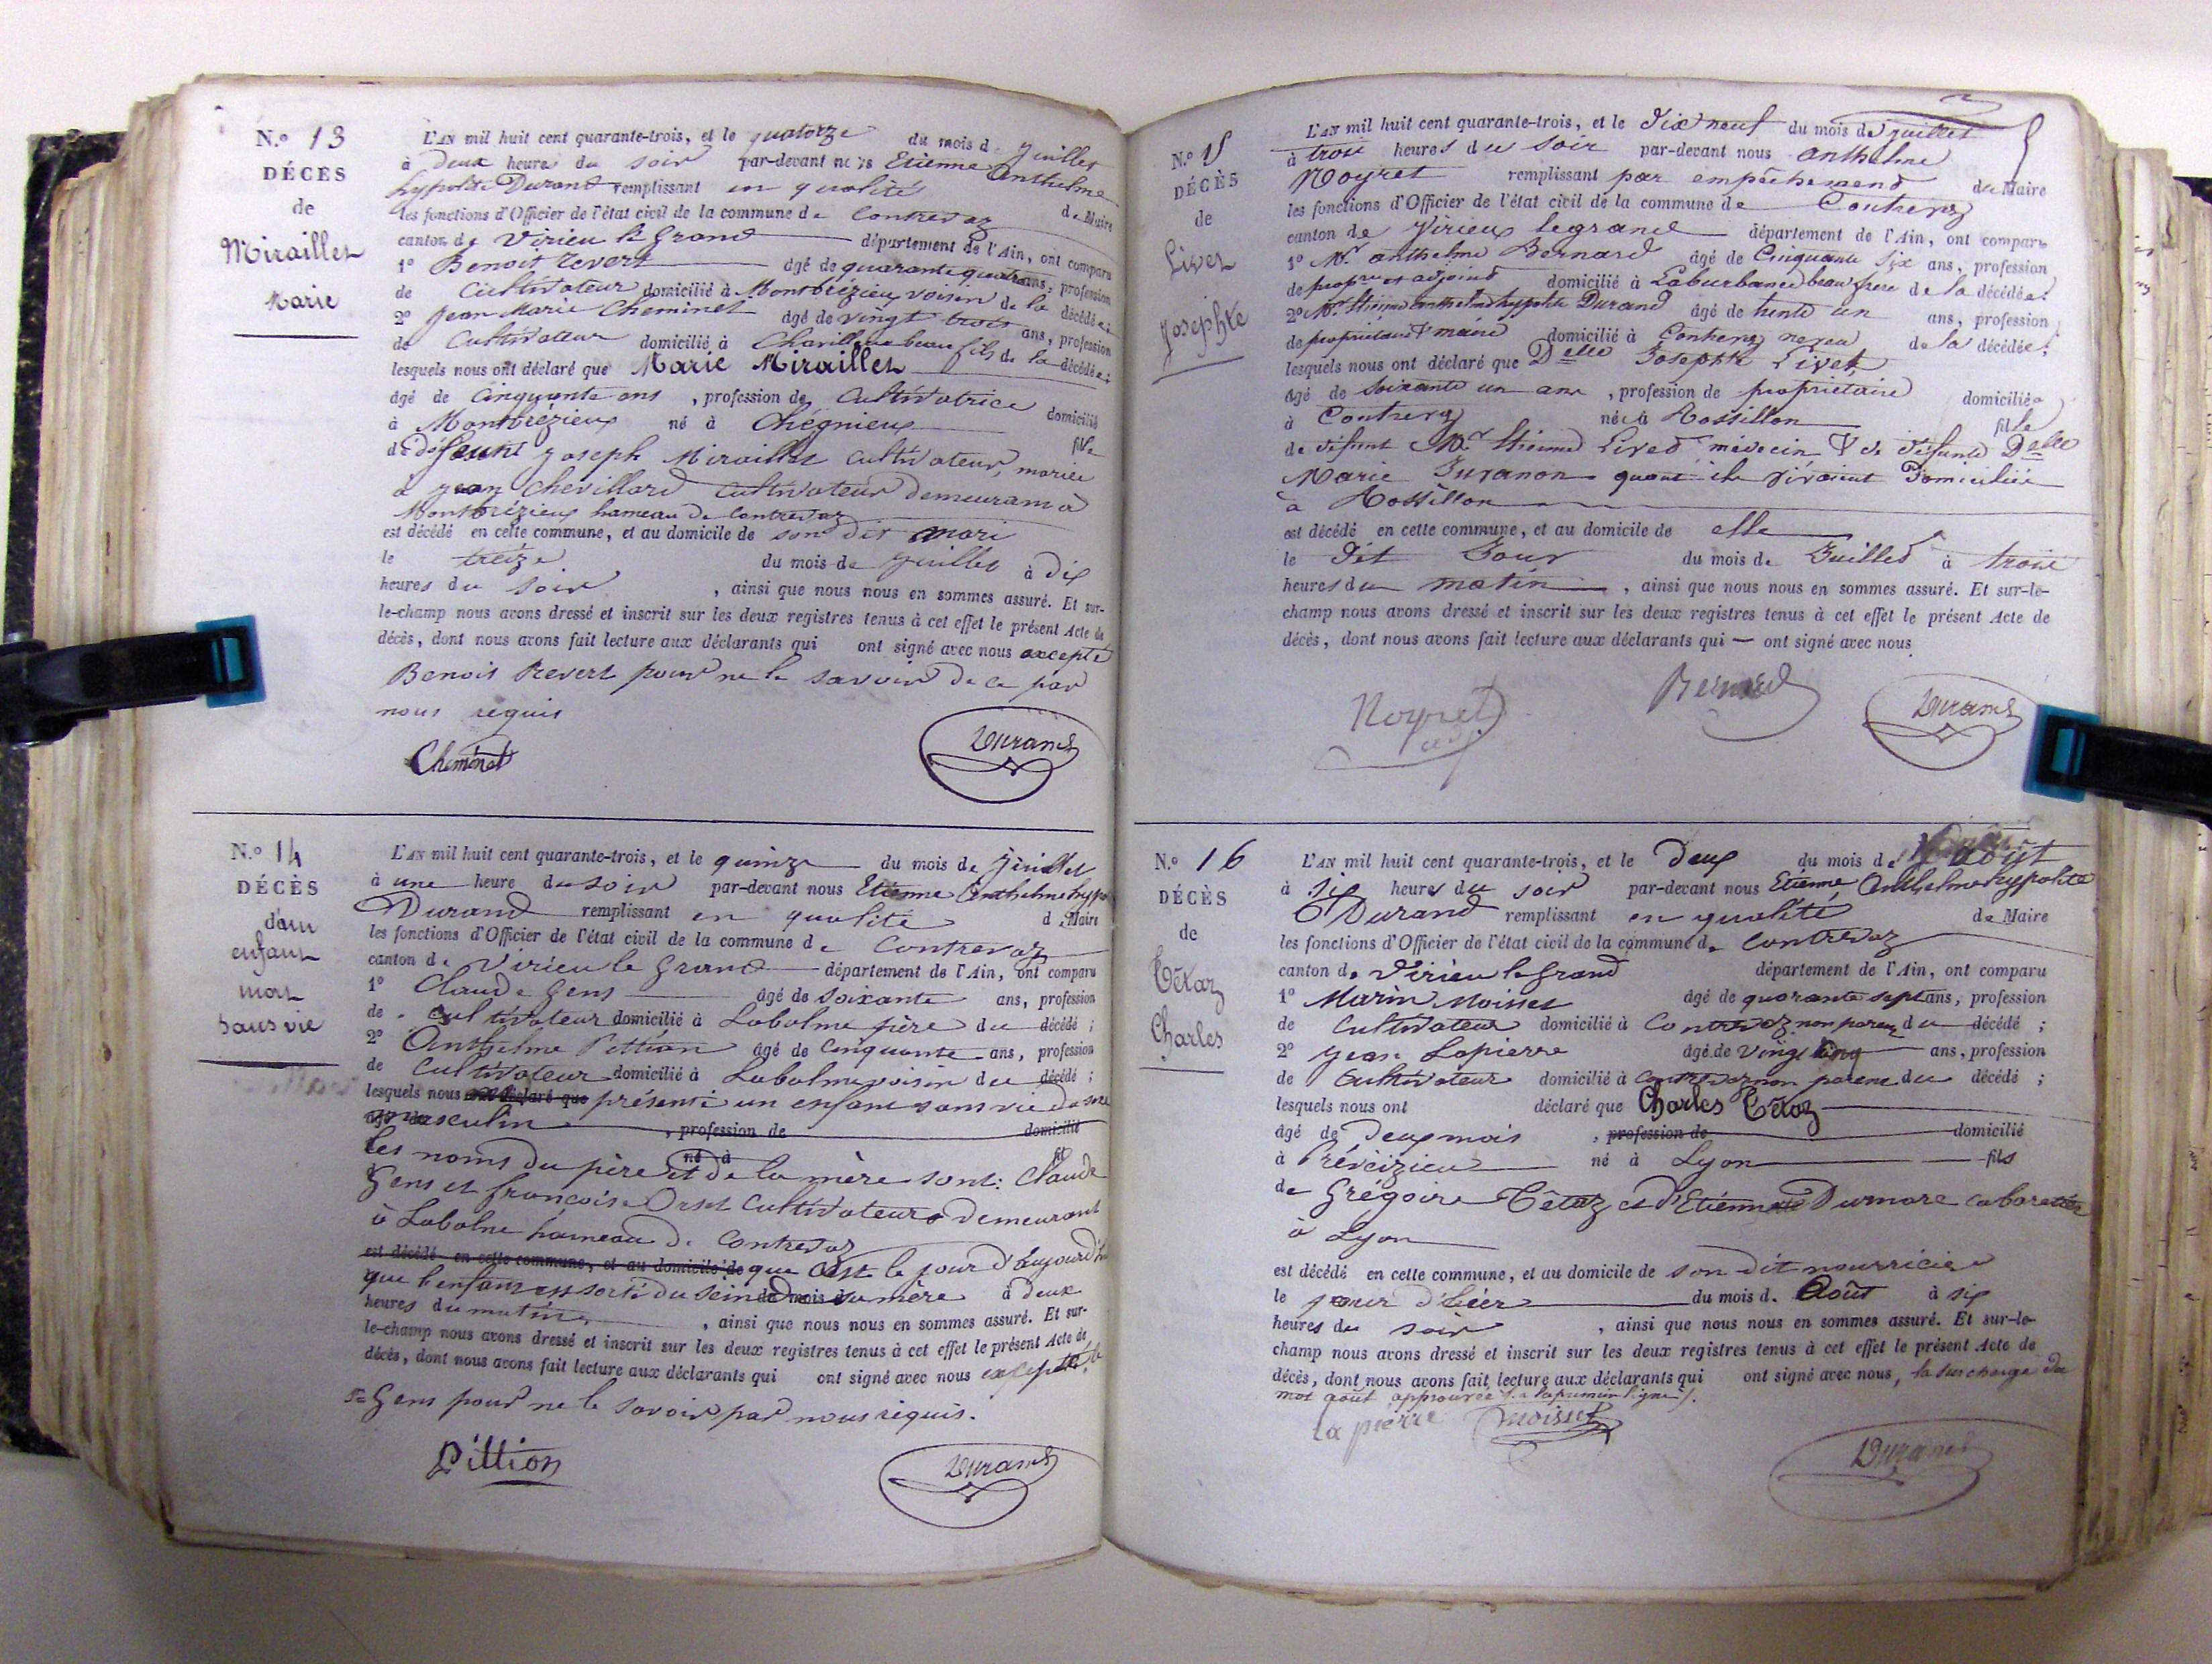 N.º 13
DÉCÈS
de
Miraillet
Marie
L'AN mil huit cent quarante-trois, et le quatorze du mois de juillet
à deux heures du soir par-devant nous Etienne Anthelme
hypolite Durand remplissant en qualité de Maire
les fonctions d'Officier de l'état civil de la commune de Contrevoz
canton de Virieu le Grand département de l'Ain, ont comparu
1º Benoit Revert âgé de quarante quatre ans, profession
de Cultivateur domicilié à Montbrézieu voisin de la décédée;
2º Jean Marie Cheminet âgé de vingt trois ans, profession
de Cultivateur domicilié à beau fils de la décédée;
lesquels nous ont déclaré que Marie Miraillet
âgé de Cinquante ans , profession de Cultivatrice domicilié
à Montbrézieu né à Chégnieu fille
de défeunt Joseph Miraillet Cultivateur, mariée
à Jean Chevillard Cultivateur demeurant à
Montbrézieu hameau de Contrevoz
est décédé en cette commune, et au domicile de son dit mari
le treize du mois de juillet à dix
heures du soir , ainsi que nous nous en sommes assuré. Et sur-
le-champ nous avons dressé et inscrit sur les deux registres tenus à cet effet le présent Acte de
décès, dont nous avons fait lecture aux déclarants qui ont signé avec nous excepté
Benoit Revert pour ne le savoir de ce par
nous requis
Cheminet Durand
N.º 14
DÉCÈS
d'un
enfant
mort
sans vie
L'AN mil huit cent quarante-trois, et le quinze du mois de juillet
à une heure du soir par-devant nous Etienne Anthelme hyppo
Durand remplissant en qualité d Maire
les fonctions d'Officier de l'état civil de la commune de Contrevoz
canton de Virieu le Grand département de l'Ain, ont comparu
1º Claude Gens âgé de soixante ans, profession
de Cultivateur domicilié à Labalme père du décédé ;
2º Anthelme Pittion âgé de Cinquante ans, profession
de Cultivateur domicilié à Labalme voisin du décédé ;
lesquels nous ont déclaré que présenté un enfant sans vie du sexe
masculin , profession de domicilié
né à fil
les noms du père et de la mère sont: Claude
Gens et françoise Orset Cultivateurs demeurant
à Labalme hameau de Contrevoz
est décédé en cette commune, et au domicile de que C'est le jour d'aujourd'hui
que l'enfant est sorti du sein de sa mère du mois d à deux
heures du matin , ainsi que nous nous en sommes assuré. Et sur-
le-champ nous avons dressé et inscrit sur les deux registres tenus à cet effet le présent Acte de
décès, dont nous avons fait lecture aux déclarants qui ont signé avec nous excepté le
Gens pour ne le savoir par nous requis.
Pittion Durand
N.º 15
DÉCÈS
de
Livet
Josephte
L'AN mil huit cent quarante-trois, et le dix neuf du mois de juillet
à trois heures du soir par-devant nous anthelme
Noyret remplissant par empêchement du Maire
les fonctions d'Officier de l'état civil de la commune de Contrevoz
canton de Virieu legrand département de l'Ain, ont comparu
1º Mr. anthelme Bernard âgé de Cinquante six ans, profession
de propre et adjoint domicilié à Laburbanche beau frere de la décédée;
2º Mr. Etienne anthelme hyppolite Durand âgé de trente un ans, profession
de proprietaire & maire domicilié à Contrevoz neveu de la décédée;
lesquels nous ont déclaré que Delle Josephte Livet
âgé de Soixante un ans , profession de proprietaire domiciliée
à Contrevoz née à Rossillon fille
de défunt Mr Etienne Livet médecin & de défunte Delle
Marie Juvanon quant ils vivaient Domiciliés
à Rossillon
est décédé en cette commune, et au domicile de elle
le dit Jour du mois de Juillet à trois
heures du matin , ainsi que nous nous en sommes assuré. Et sur-le-
champ nous avons dressé et inscrit sur les deux registres tenus à cet effet le présent Acte de
décès, dont nous avons fait lecture aux déclarants qui — ont signé avec nous
Noyret Bernard Durand
N.º 16
DÉCÈS
de
Têtaz
Charles
L'AN mil huit cent quarante-trois, et le deux du mois de août
à six heures du soir par-devant nous Etienne Anthelme hyppolite
Durand remplissant en qualité de Maire
les fonctions d'Officier de l'état civil de la commune de Contrevoz
canton de Virieu le Grand département de l'Ain, ont comparu
1º Marin Moisset âgé de quarante sept ans, profession
de Cultivateur domicilié à Contrevoz non parent du décédé ;
2º Jean Lapierre âgé de vingt cinq ans, profession
de Cultivateur domicilié à Contrevoz non parent du décédé ;
lesquels nous ont déclaré que Charles Têtaz
âgé de deux mois , profession de domicilié
à né à Lyon fils
de Grégoire Têtaz et d'Etiennette Durmare cabaretier
à Lyon
est décédé en cette commune, et au domicile de son dit nourricier
le jour d'hier du mois d. Août à six
heures du soir , ainsi que nous nous en sommes assuré. Et sur-le-
champ nous avons dressé et inscrit sur les deux registres tenus à cet effet le présent Acte de
décès, dont nous avons fait lecture aux déclarants qui ont signé avec nous, la surcharge du
mot août approuvée à la première ligne.
la pierre moisset
Durand